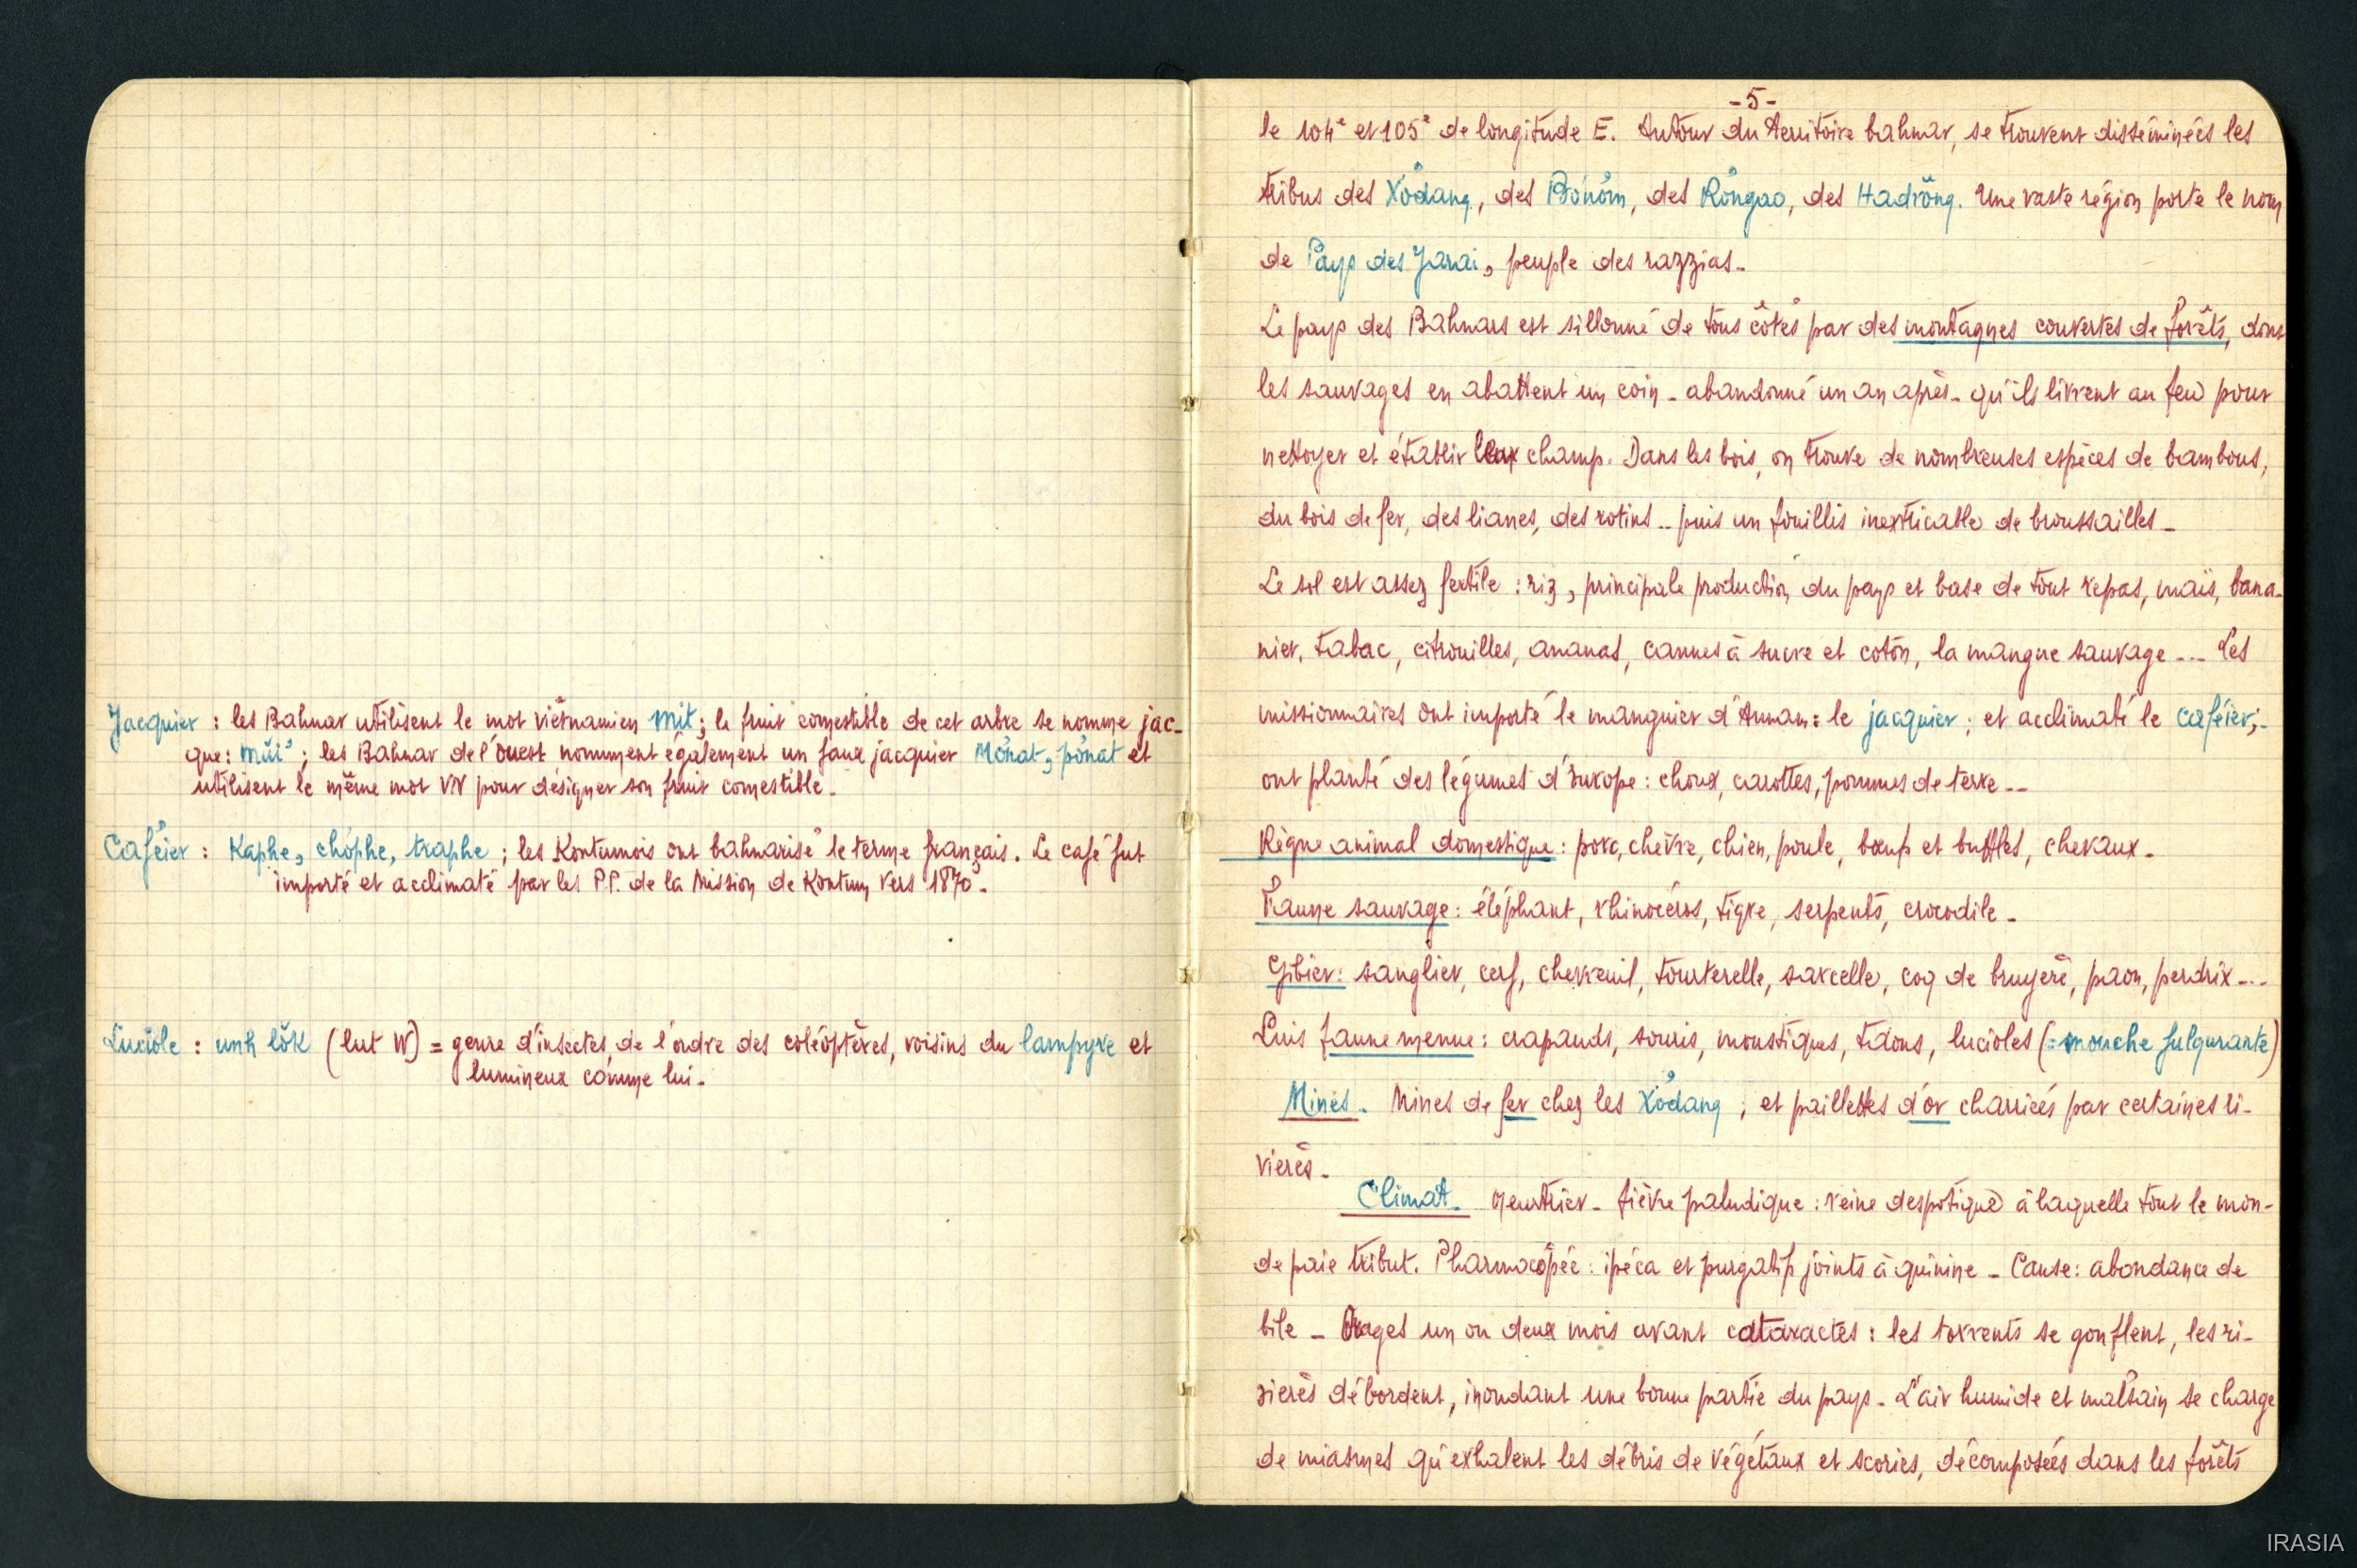 Jacquier : les Bahnar utilisent le mot viêtnamien mit ; le fruit comestible de cet arbre se nomme jac-
que : ; les Bahnar de l'ouest nomment également un faux jacquier Mơnat, pơnat et
utilisent le même mot VN pour désigner son fruit comestible.
Caféier : Kaphe, chơphe, traphe ; les Kontumois ont bahnarisé le terme français. Le café fut
importé et acclimaté par les P.P. de la Mission de Kontum vers 1870.
Luciole : unh lŏk (lut W) = genre d'insectes, de l'ordre des coléoptères, voisins du lampyre et
lumineux comme lui.
-5-
le 104e et 105e de longitude E. Autour du territoire bahnar, se trouvent disséminées les
tribus des Xơdang, des Bơnơm, des Rơngao, des Hadrŏng. Une vaste région porte le nom
de Pays des Jarai, peuple des razzias.
Le pays des Bahnars est sillonné de tous côtés par des montagnes couvertes de forêts, dont
les sauvages en abattent un coin - abandonné un an après - qu'ils livrent au feu pour
nettoyer et établir leur champ. Dans les bois, on trouve de nombreuses espèces de bambous,
du bois de fer, des lianes, des rotins .. puis un fouillis inextricable de broussailles.
Le sol est assez fertile : riz, principale production du pays et base de tout repas, maïs, bana-
nier, tabac, citrouilles, ananas, cannes à sucre et coton, la mangue sauvage ... Les
missionnaires ont importé le manguier d'Annam : le jacquier ; et acclimaté le caféier ;
ont planté des légumes d'Europe : choux, carottes, pommes de terre ..
Règne animal domestique : porc, chèvre, chien, poule, bœuf et buffles, chevaux.
Faune sauvage : éléphant, rhinocéros, tigre, serpents, crocodile.
Gibier : sanglier, cerf, chevreuil, tourterelle, sarcelle, coq de bruyère, paon, perdrix ...
Puis faune menue : crapauds, souris, moustiques, taons, lucioles (: mouche fulgurante)
Mines. Mines de fer chez les Xơdang ; et paillettes d'or charriées par certaines ri-
vières.
Climat. meurtrier - fièvre paludique : reine despotique à laquelle tout le mon-
de paie tribut. Pharmacopée : ipéca et purgatif joints à quinine - Cause : abondance de
bile - Orages un ou deux mois avant cataractes : les torrents se gonflent, les ri-
zières débordent, inondant une bonne partie du pays. L'air humide et malsain se charge
de miasmes qu'exhalent les débris de végétaux et scories, décomposées dans les forêts
IRASIA